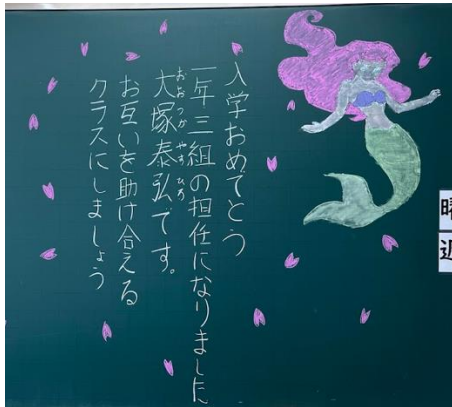 入学おめでとう
一年三組の担任になりました
大塚泰弘です。
おおつかやすひろ
お互いを助け合える
クラスにしましょう
曜
週